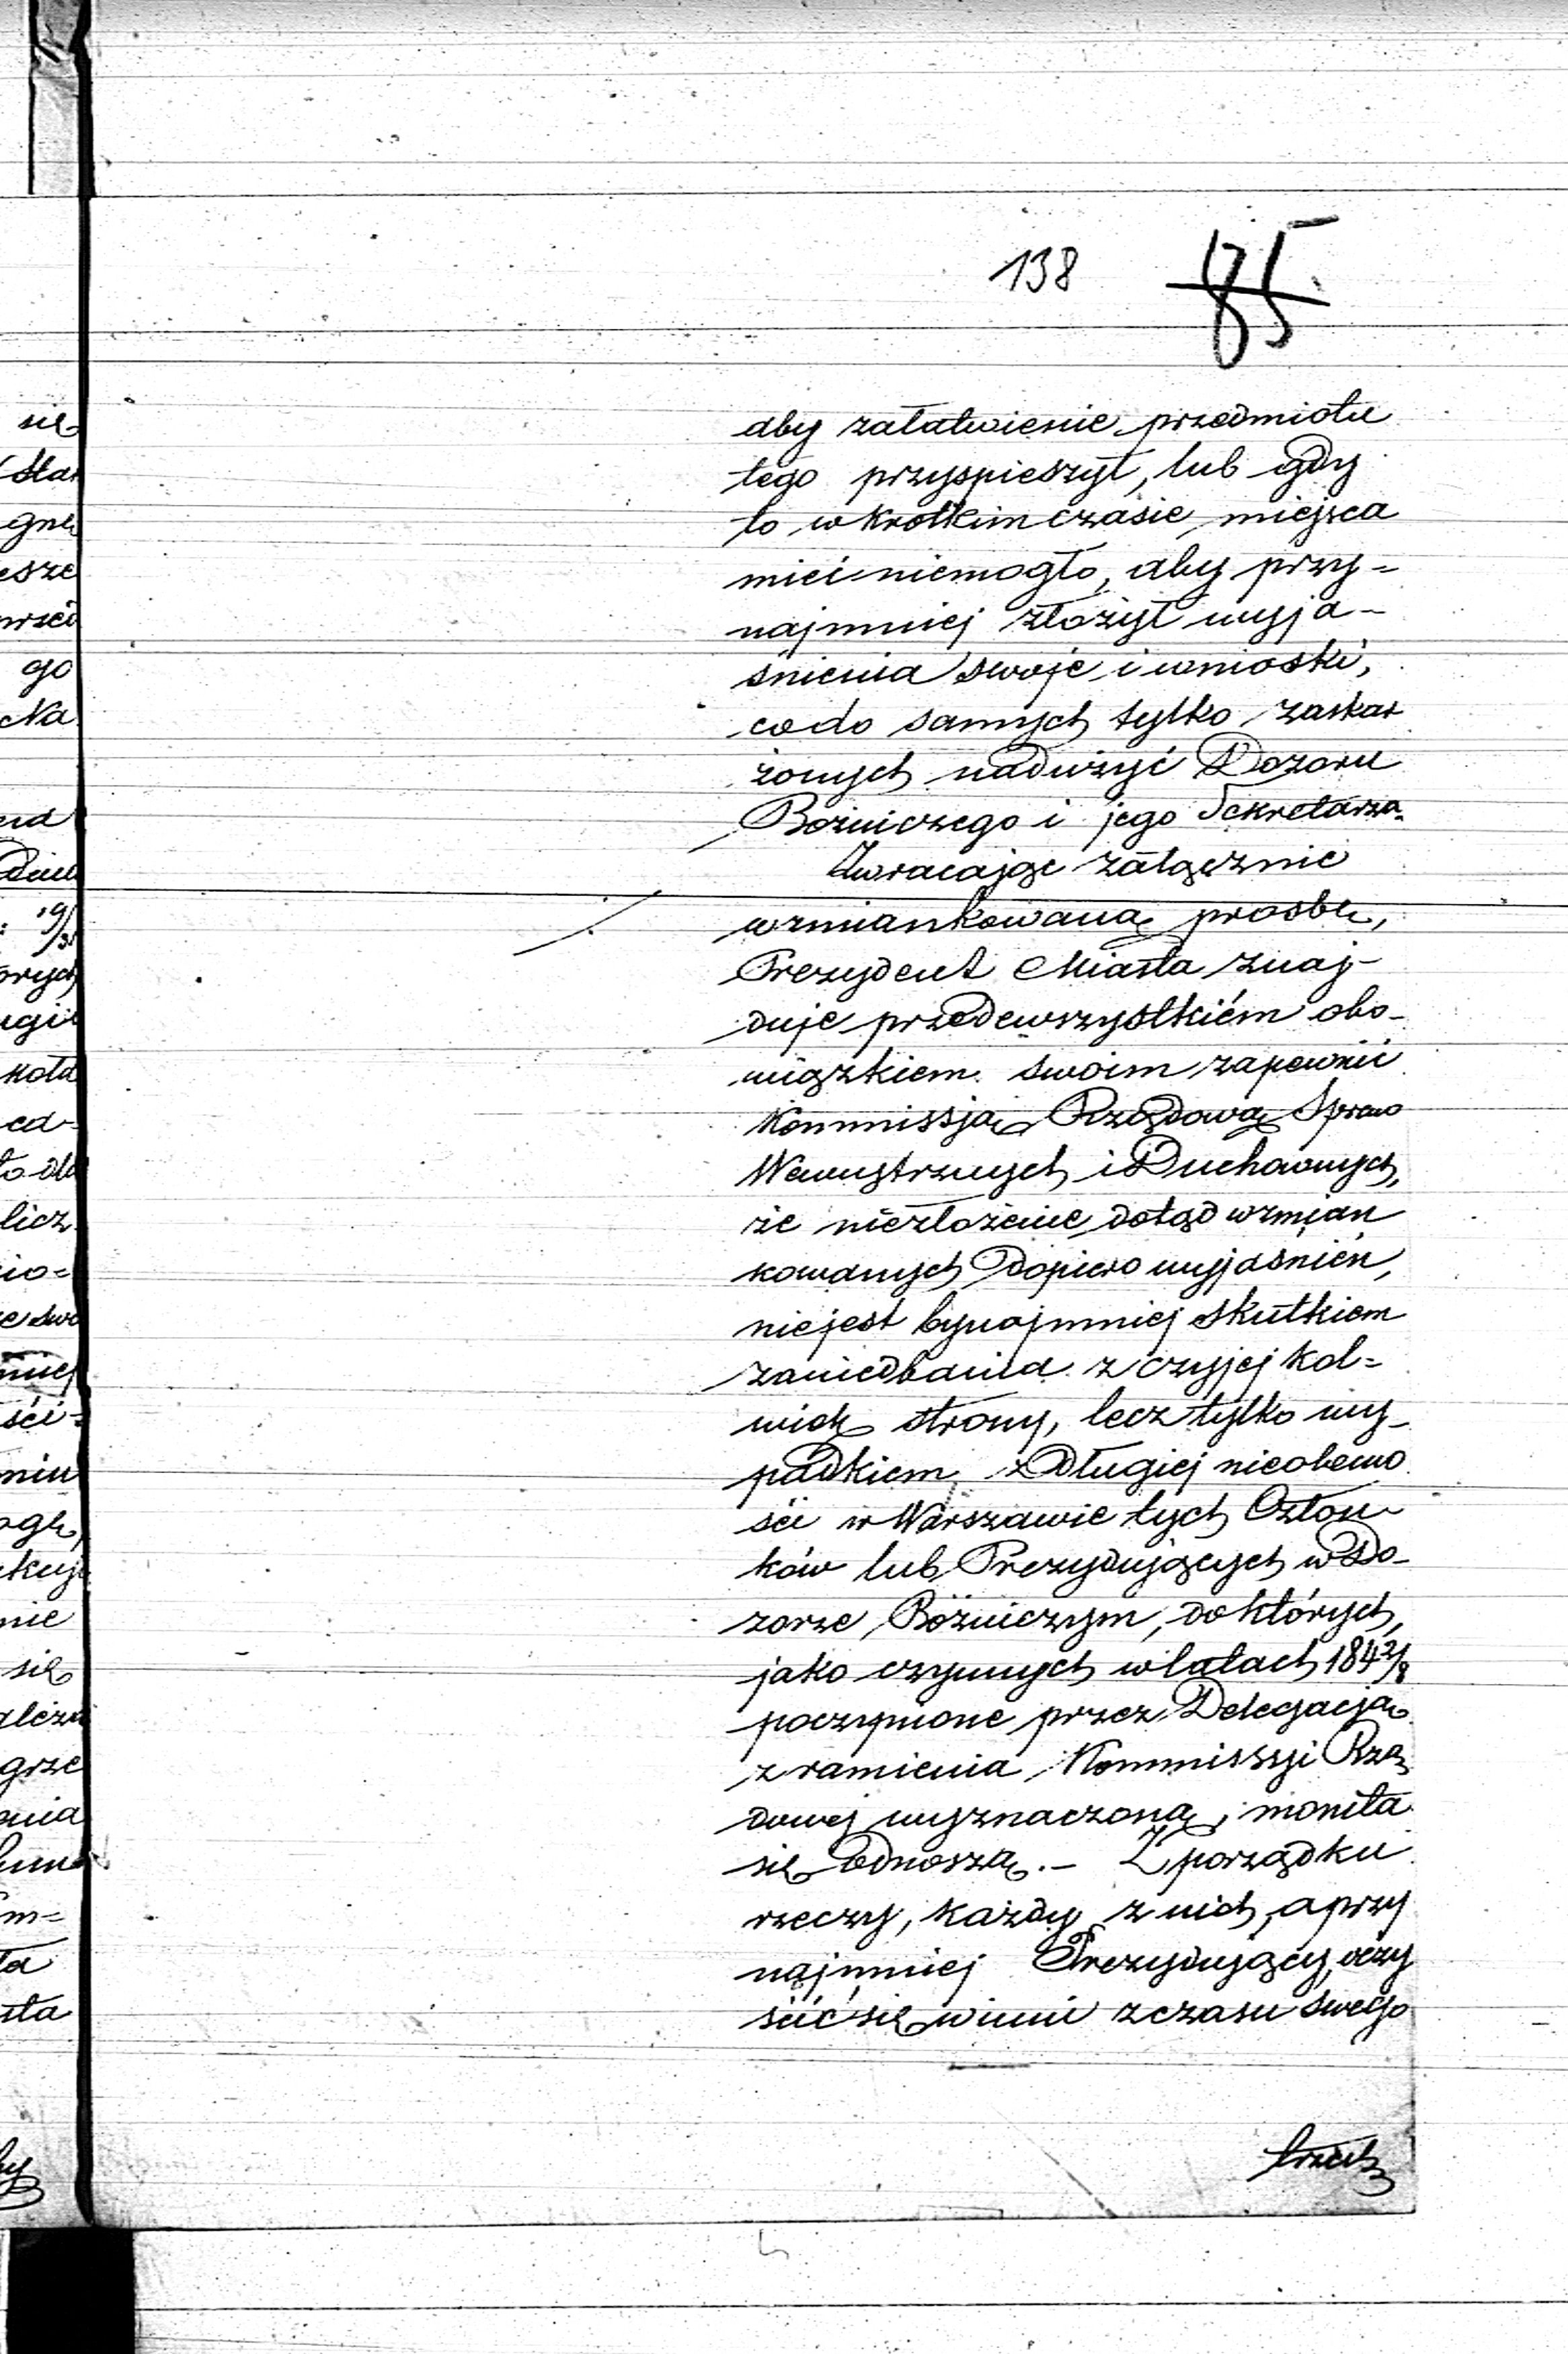 138 85
aby załatwienie przedmiotu
tego przyspieszył, lub gdy
to w krótkim czasie miejsca
mieć niemogło, aby przy=
najmniej złożył wyja-
śnienia swoje i wnioski,
codo samych tylko zaskar
żonych nadużyć Dozoru
Bożniczego i jego Sekretarza.
Zwracając załącznie
wzmiankowaną prosbę,
Prezydent Miasta znaj-
duje przedewszystkiém obo-
wiązkiem swoim zapewnić
Kommissją Rządową Spraw
Wewnętrznych i Duchownych,
że niezłożenie dotąd wzmian
kowanych dopiero wyjaśnień,
niejest bynajmniej skutkiem
zaniedbania z czyjej kol=
wiek strony, lecz tylko wy-
padkiem z długiej nieobecno
ści w Warszawie tych Człon-
ków lub Prezydujących w Do-
zorze Bóżniczym, do których,
jako czynnych w latach 184 2/8
poczynione przez Delegacją
z ramienia Kommissyi Rzą
dowej wyznaczoną, monita
się odnoszą.- Z porządku
rzeczy, każdy z nich, a przy
najmniej Prezydujący, oczy
ścić się winni z czasu swego
trzech
się
go
Na
licz
nie
się